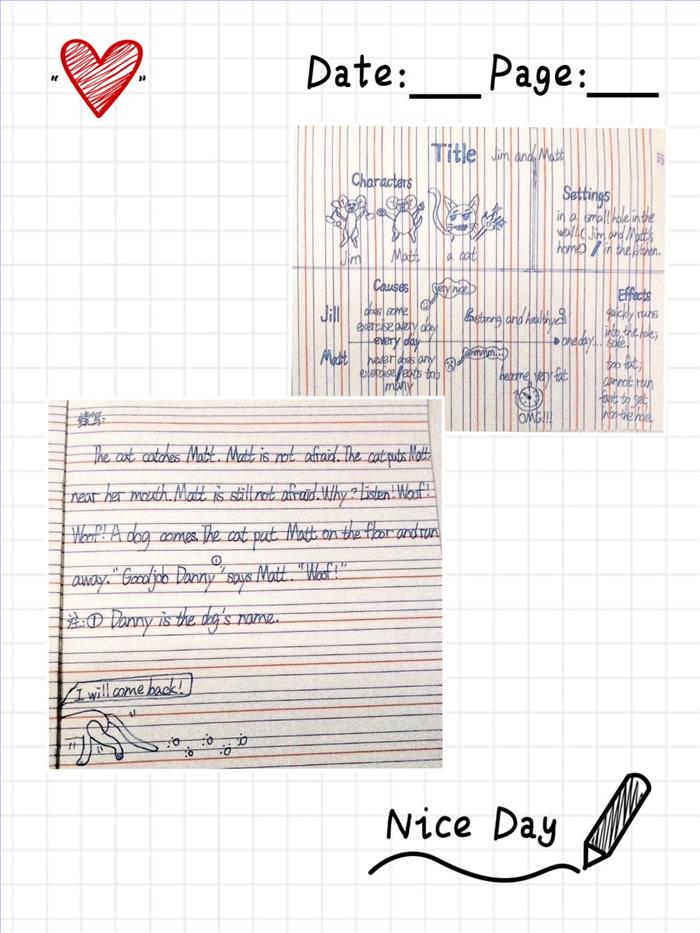 Date: Page:
Title Jim and Matt
Characters
Jim Matt a cat
Settings
in a small hole in the
wall( Jim and Matt's
home) / in the kitchen.
Causes
very nice
Effects
Jill
does some
exercise every day
every day
strong and healthy
one day...
quickly runs
into the hole;
safe.
Matt
never does any
exercise/eats too
many
become very fat
OMG!!!
too fat;
cannot run
fast to get
into the hole.
续写:
The cat catches Matt. Matt is not afraid. The cat puts Matt
near her mouth. Matt is still not afraid. Why? Listen! Woof!
Woof! A dog comes. The cat put Matt on the floor and run
away. "Good job Danny①" says Matt. "Woof!"
注:① Danny is the dog's name.
I will come back!
Nice Day